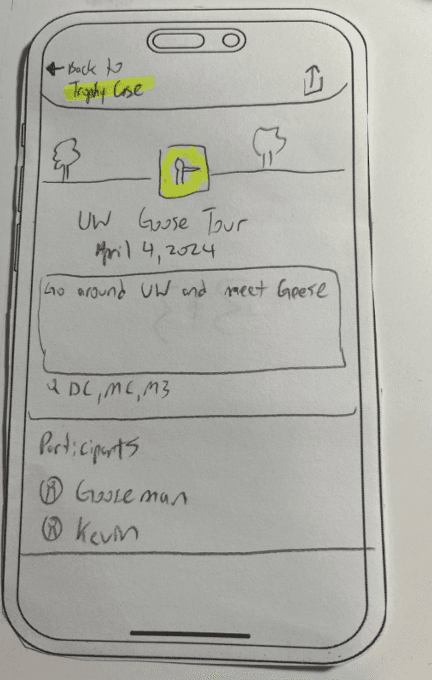 ← Back to
Trophy Case
UW Goose Tour
April 4, 2024
Go around UW and meet Geese
DC, MC, M3
Participants
Gooseman
Kevin